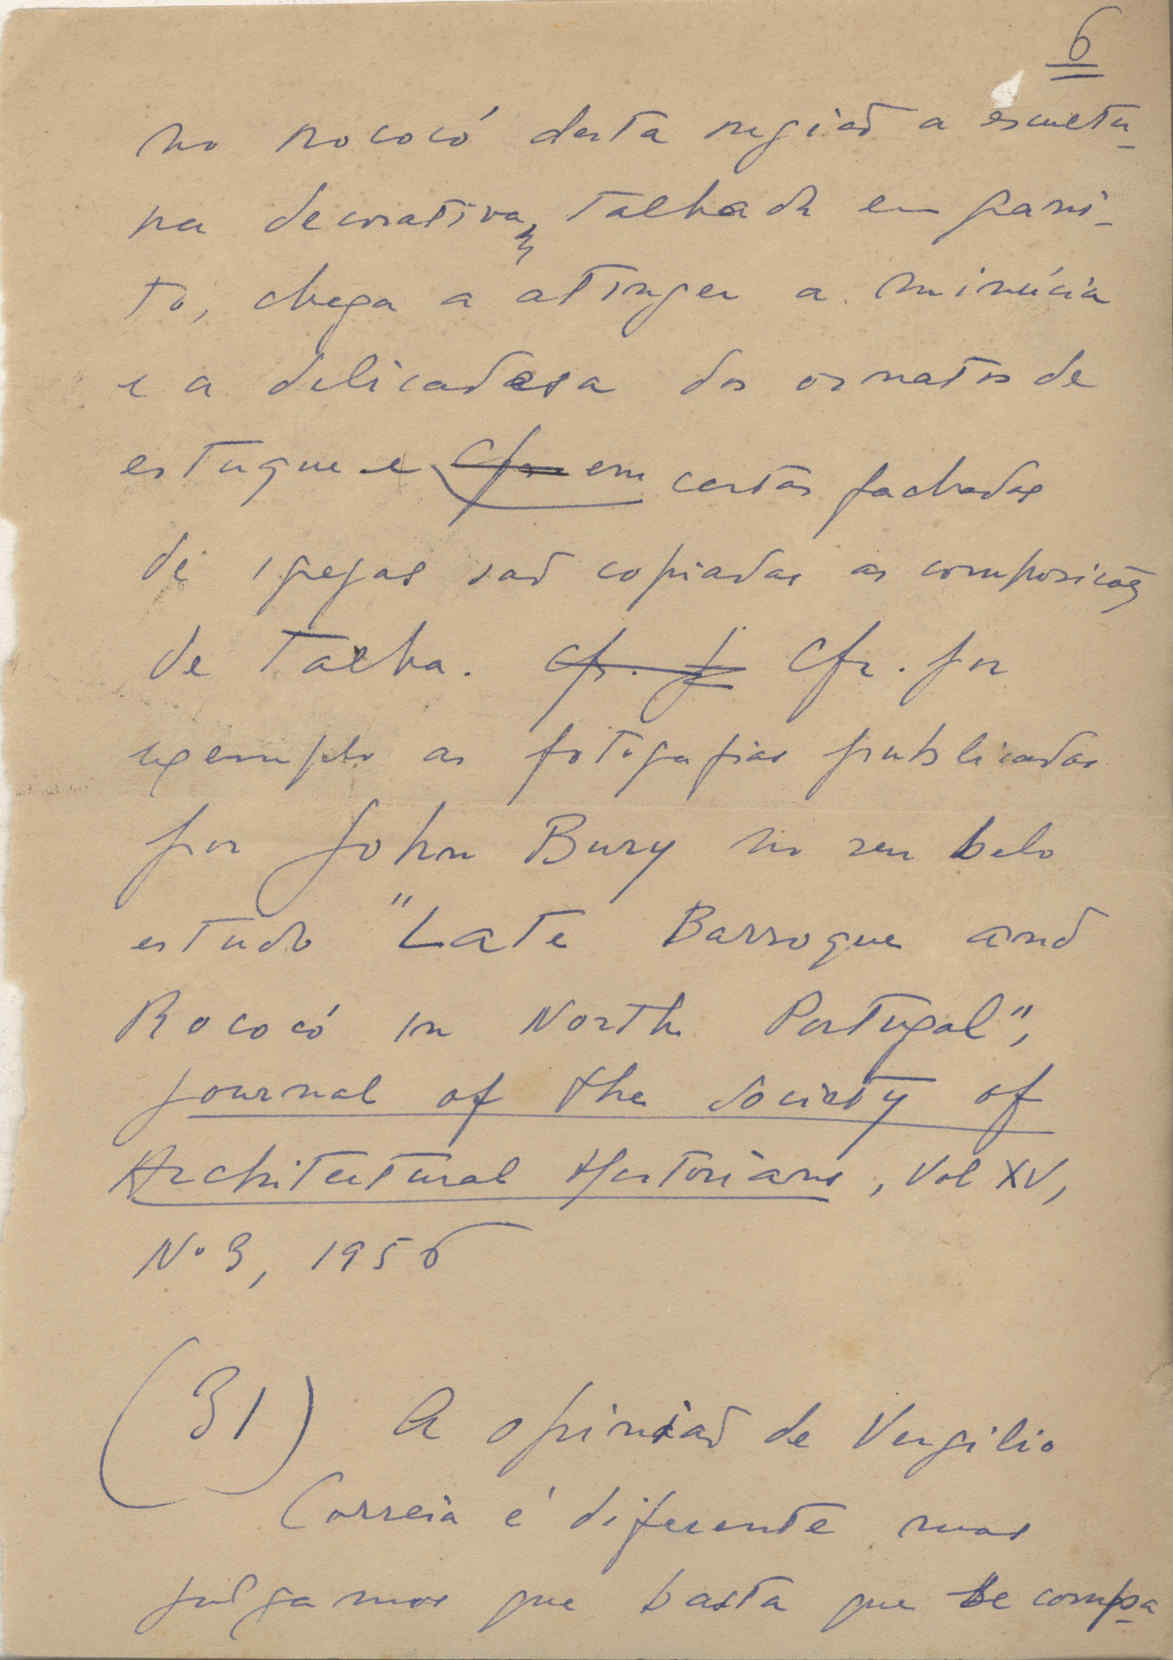 6
no rococó desta região a escultu-
ra decorativa, talhada em grani-
to, chega a atinger a minúcia
e a delicadesa dos ornatos de
estuque e em certas fachadas
de igrejas são copiadas as composições
de talha. Cfr. por
exemplo as fotografias publicadas
por John Bury no seu belo
estudo "Late Barroque and
Rococó in North Portugal",
Journal of the Society of
Architectural Historians, Vol XV,
Nº 3, 1956
(31) A opinião de Vergilio
Correia é diferente mas
julgamos que basta que se compa